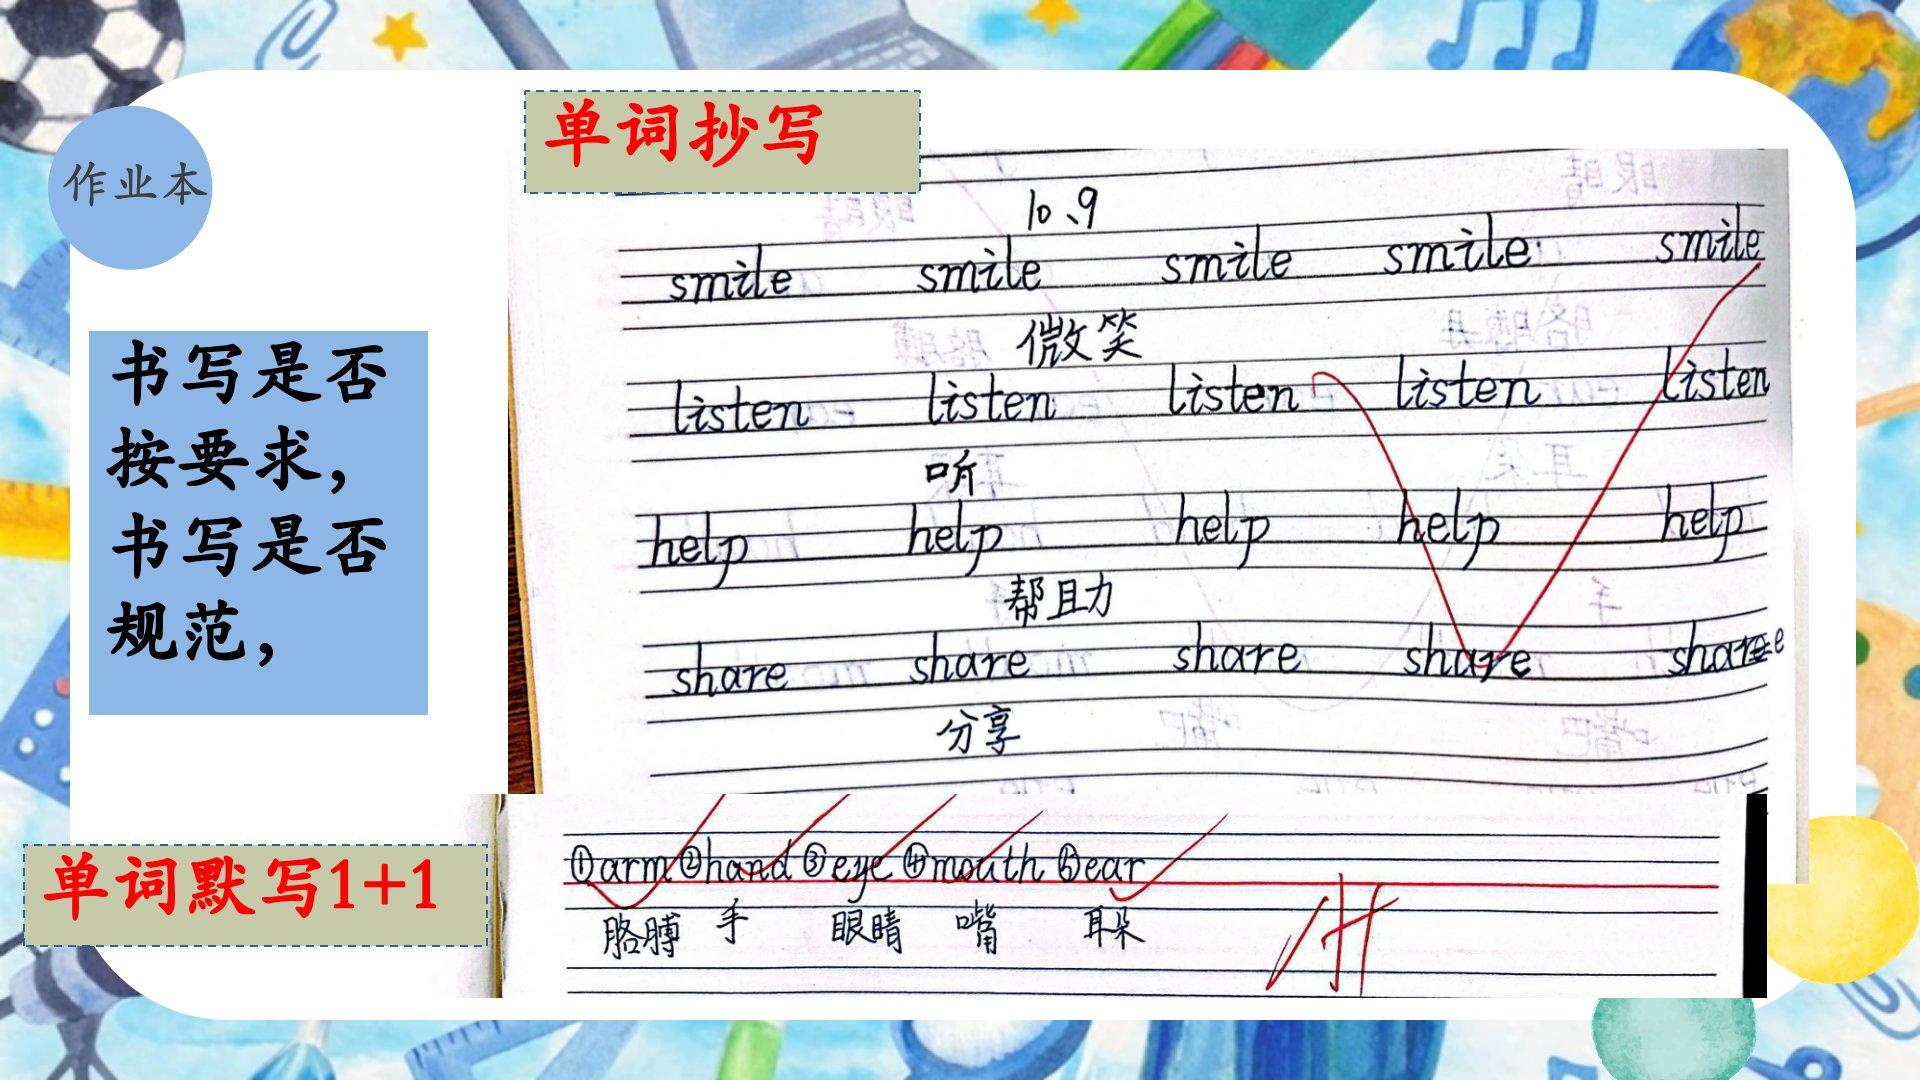 单词抄写
作业本
书写是否
按要求，
书写是否
规范，
10、9
smile smile smile smile smile
微笑
listen listen listen listen listen
听
help help help help help
帮助
share share share share share
分享
单词默写1+1
①arm ②hand ③eye ④mouth ⑤ear
胳膊 手 眼睛 嘴 耳朵